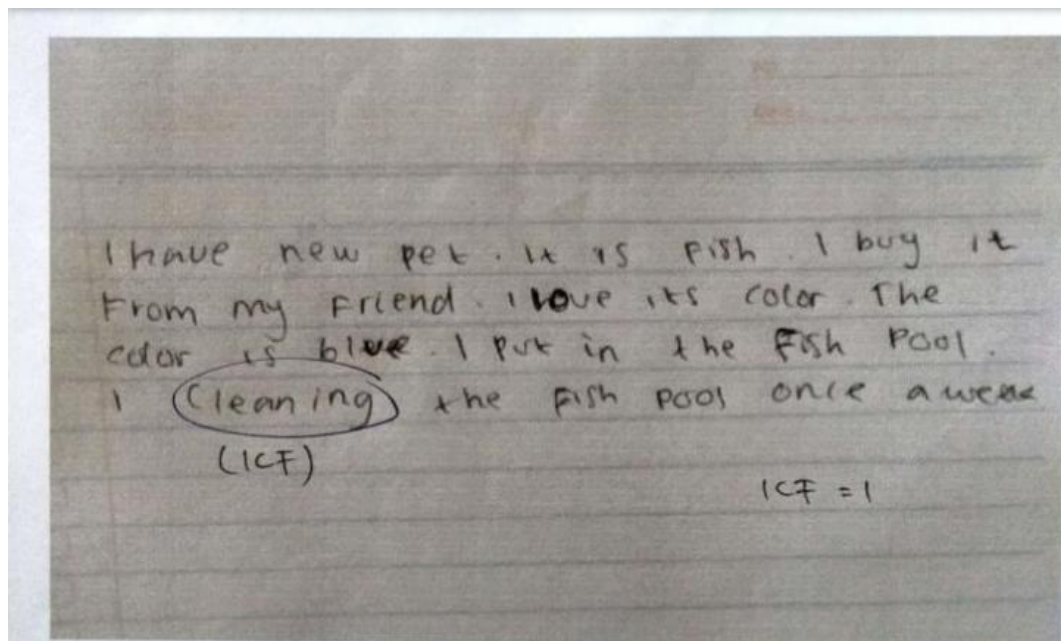 I have new pet. It is Fish. I buy it
From my Friend. I love its color. The
color is blue. I put in the Fish Pool.
I Cleaning the Fish pool once a week
(ICF)
ICF = 1